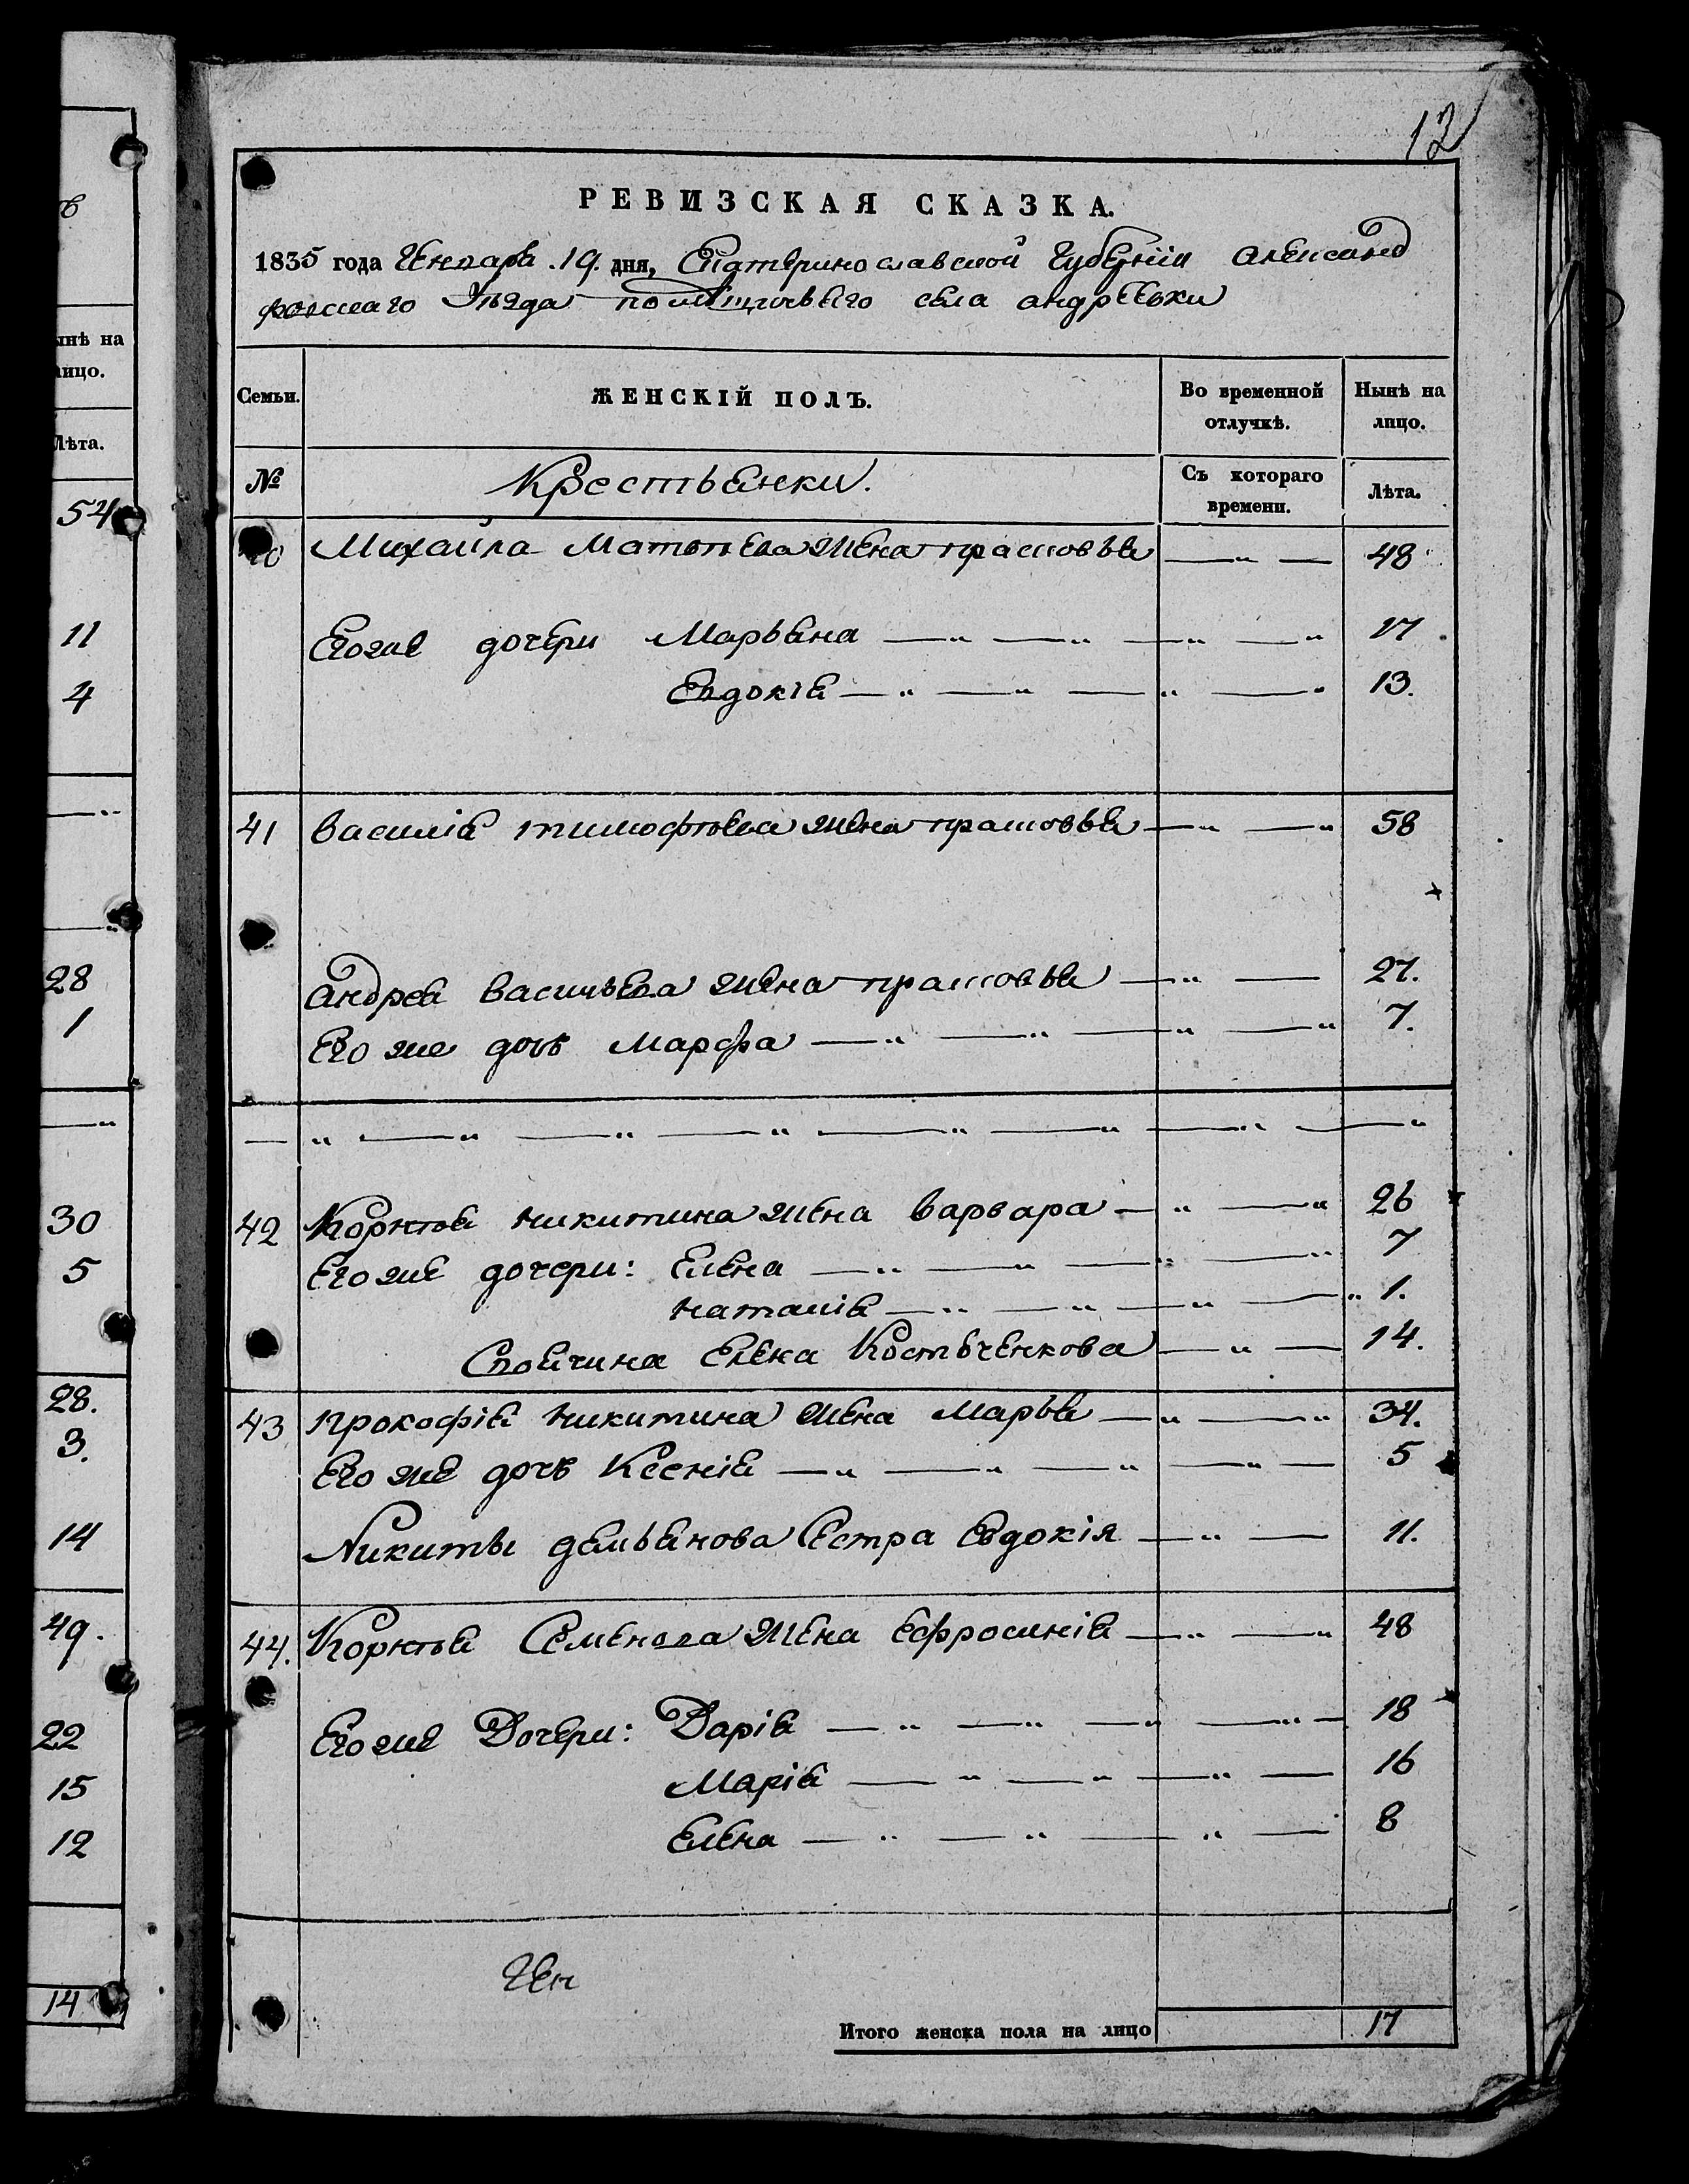 ѣ
ынѣ на
лицо.
Лѣта.
54
11
4
28
1
30
5
28.
3.
14
49.
22
15
12
14
12
РЕВИЗСКАЯ СКАЗКА.
1835 года Генваря .19. дня, Екатеринославской Губерніи Александ
ровскаго Уѣзда помѣщичьяго села андреевки
Семьи. ЖЕНСКІЙ ПОЛЪ. Во временной отлучкѣ. Нынѣ на лицо.
№ Крестьянки. Съ котораго времени. Лѣта.
40 Михайла Матвѣева жена прасковья 48
Егоже дочери Марьяна 17
Евдокія 13.
41 василія тимофѣева жена прасковья 58
андрея васильева жена прасковья 27.
Его же дочь марфа 7.
42 Корнѣя никитина жена варвара 26
Егоже дочери: Елена 7
наталія 1.
Своячина Елена Костюченкова 14.
43 прокофія никитина жена марья 34.
Его же дочь Ксенія 5
Никиты демьянова Сестра Евдокія 11.
44. Корнѣя Семенова жена ефросинія 48
Егоже Дочери: Дарія 18
Марія 16
Елена 8
Ген
Итого женска пола на лицо 17